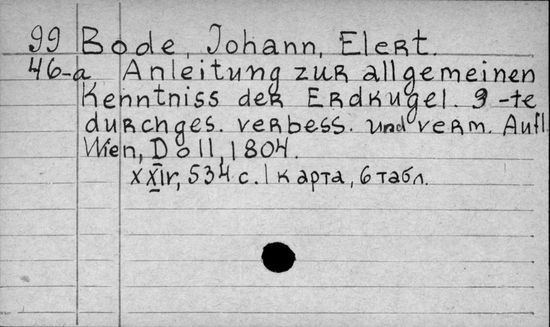 99 Bode, Johann, Elert.
46-a Anleitung zur allgemeinen
Kenntniss der Erdkugel. 9-te
durchges. verbess. und verm. Aufl
Wien, Doll, 1804.
XXIV, 534 с. 1 карта, 6 табл.